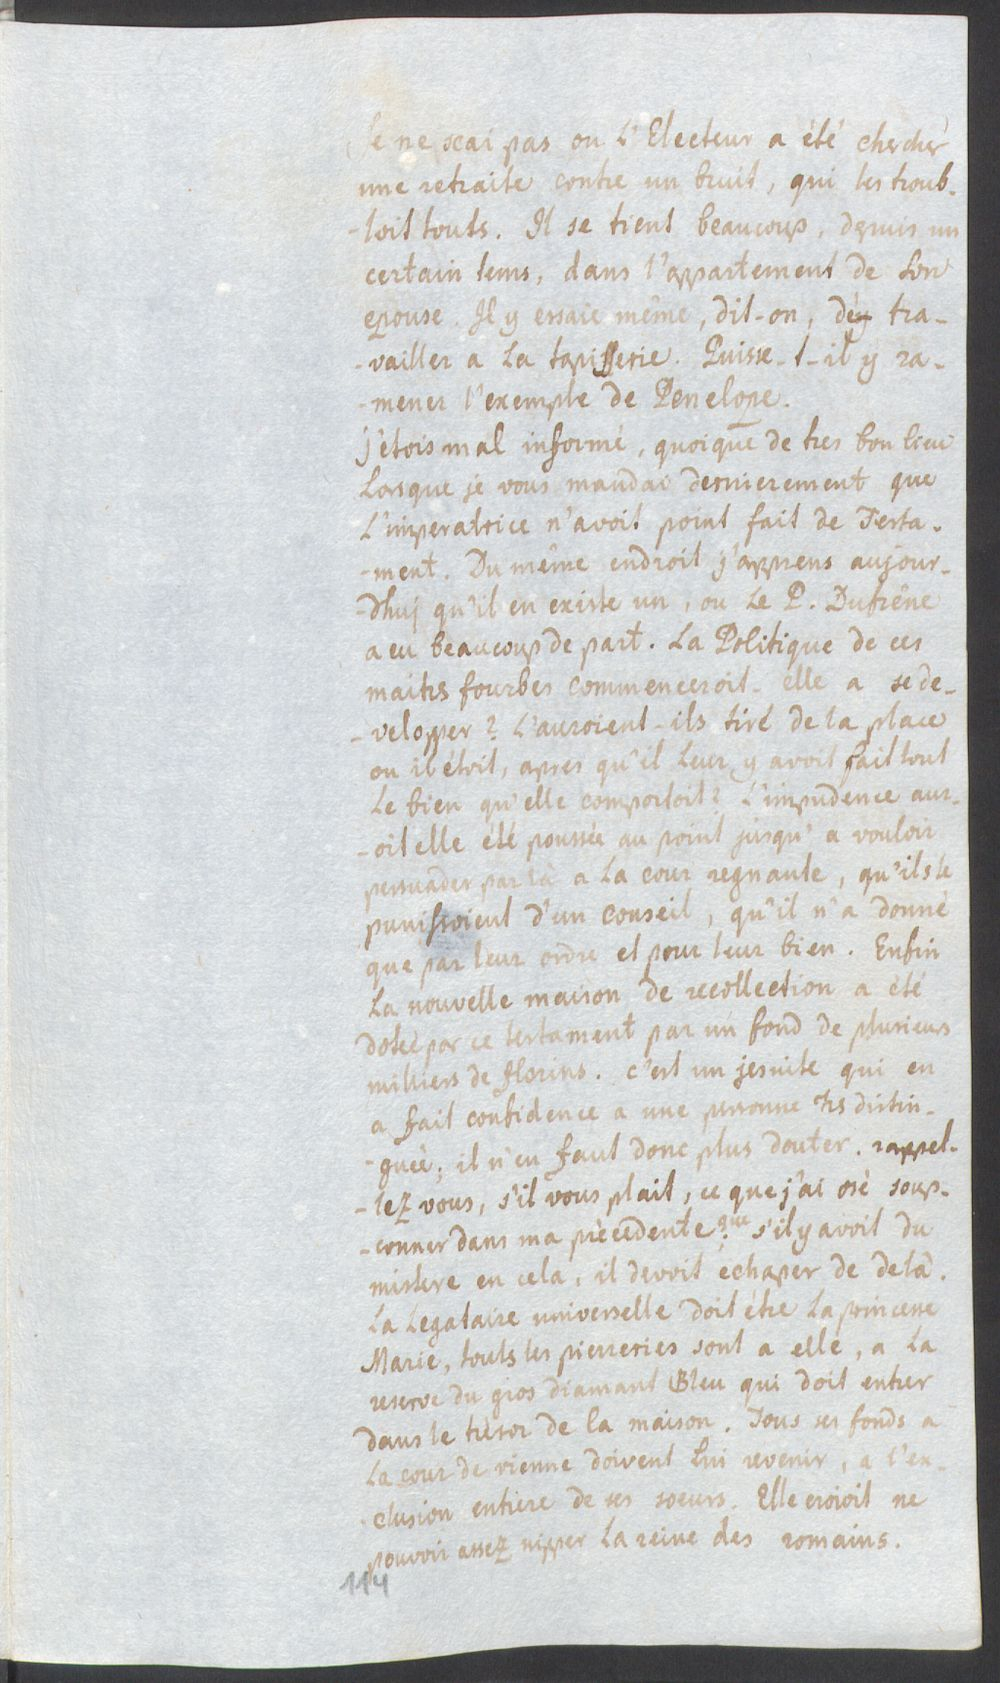 Je ne scai pas ou L'Electeur a été cherchér
une retraite contre un bruit, qui les troub-
-loit touts. Il se tient beaucoup, depuis un
certain tems, dans l'appartement de Son
epouse. Il y essaie même, dit-on, dé tra-
-vailler a La tapisserie. Puisse-t-il y ra-
-mener l'exemple de Penelope.
j'étois mal informé, quoique de tres bon lieu
Lorsque je vous mandai dernierement que
L'imperatrice n'avoit point fait de Testa-
-ment. Du même endroit j'apprens aujour-
-dhuj qu'il en existe un, ou Le P. Dufrêne
a eu beaucoup de part. La Politique de ces
maitrs fourbes commenceroit-elle a se de-
-velopper? L'auroient-ils tiré de la place
ou il étoit, apres qu'il Leur y avoit fait tout
Le bien qu'elle comportoit? L'impudence aur-
-oit elle été poussée au point jusqu'a vouloir
persuader par là a La cour regnante, qu'ils le
punissoient d'un conseil, qu'il n'a donné
que par leur ordre et pour leur bien. Enfin
La nouvelle maison de recollection a été
dotée par ce testament par un fond de plusieurs
milliers de florins. c'est un jesuite qui en
a fait confidence a une personne trs distin-
-guée; il n'en faut donc plus douter. rappel-
-lez vous, s'il vous plait, ce que j'ai osé soup-
-conner dans ma précedente: que s'il y avoit du
mistere en cela, il devoit échaper de dela.
La Legataire universelle doit étre La princesse
Marie, touts les pierreries sont a elle, a La
reserve du gros diamant Bleu qui doit entrer
dans le trèsor de la maison. Tous ses fonds a
La cour de vienne doivent lui revenir, a l'ex-
-clusion entiere de ses soeurs. Elle croioit ne
pouvoir assez nipper La reine des romains.
114